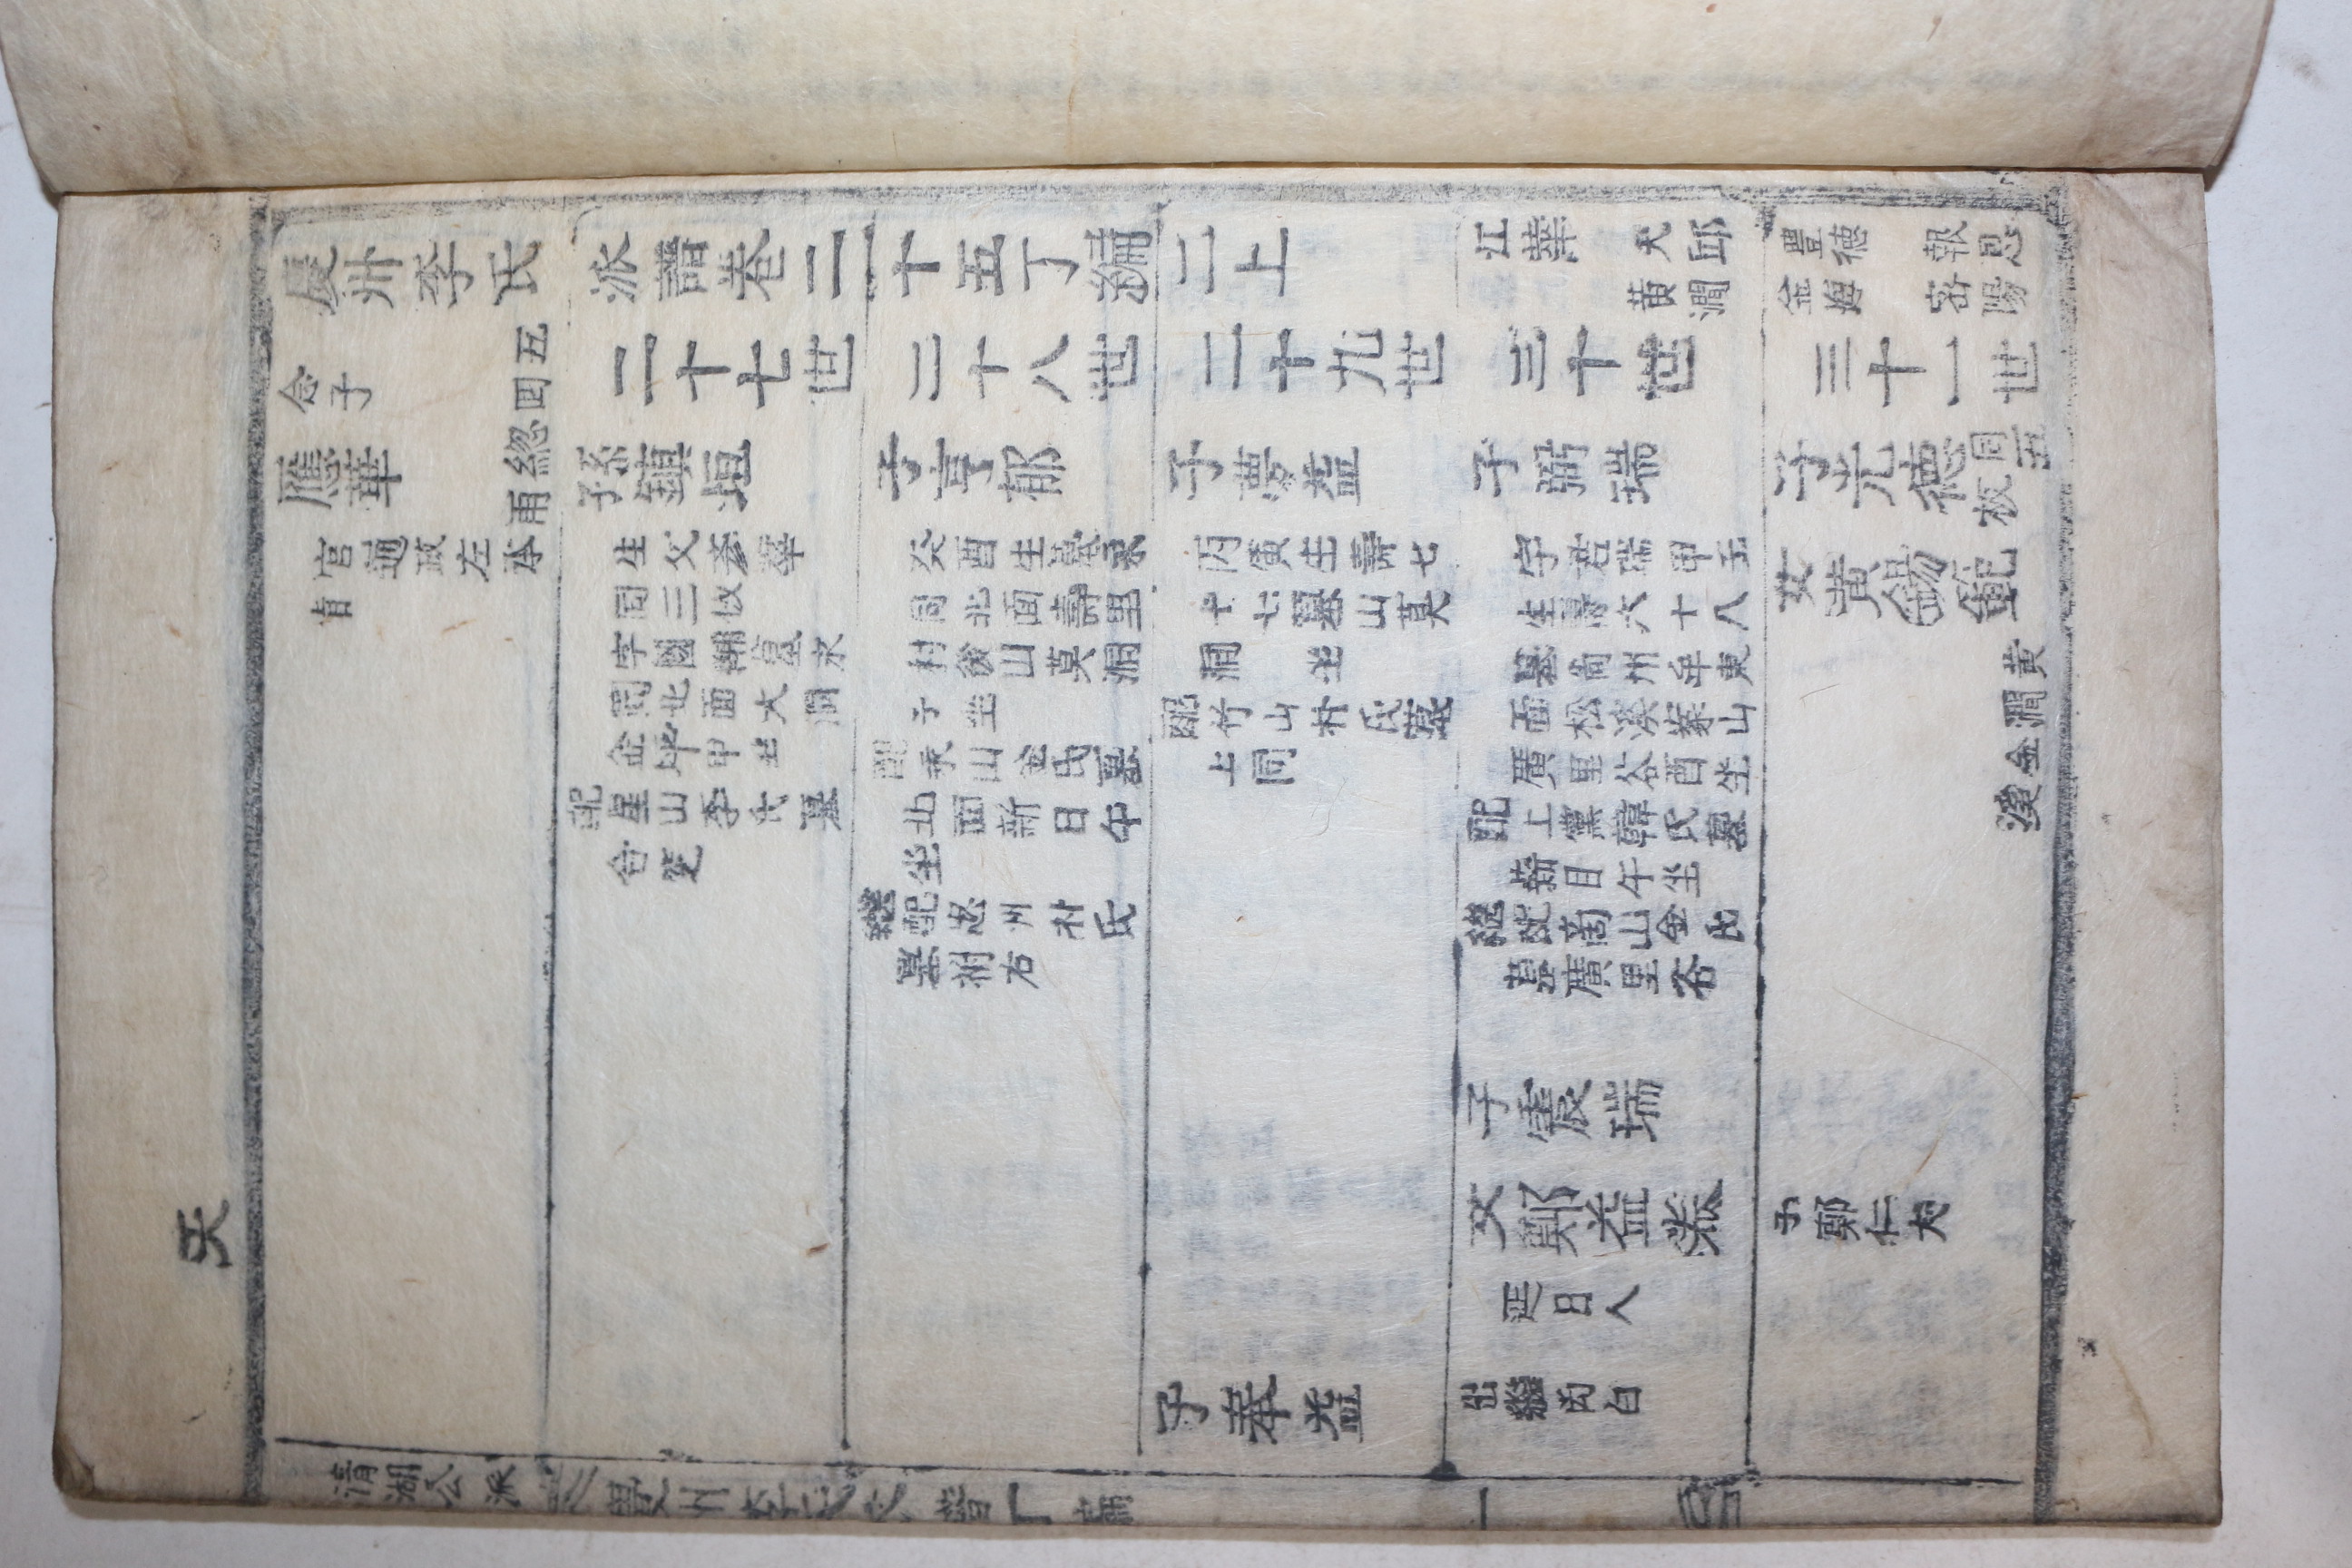 天
慶州李氏派譜卷二十五丁編二上
江華 大邱 豊德 報恩
黃澗 金海 密陽
二十七世
二十八世
二十九世
三十世
三十一世
念子
五四總甫
應華
官通政左承
旨
孫鎮垣
生父彥華
同三板
字國輔墓永
同北面大洞
企坪甲坐
配星山李氏墓
合窆
子亨郁
癸酉生墓永
同北面壽里
村後山莫洞
子坐
配永山金氏墓
北面新日午
坐
繼配忠州朴氏
墓祔右
子夢益
丙寅生壽七
十七墓山莫
洞 坐
配竹山朴氏墓
上同
子弼瑞
字君瑞甲子
生壽六十八
墓尚州牟東
面松溪案山
廣里谷酉坐
配上黨韓氏墓
新日午坐
繼配商山金氏
墓廣里谷
子光德
同五板
女黃錫範
黃澗金溪
子震瑞
女鄭益
延日人
子鄭仁大
子奉益
出繼尚白
清湖公派
慶州李氏派譜丁編
一